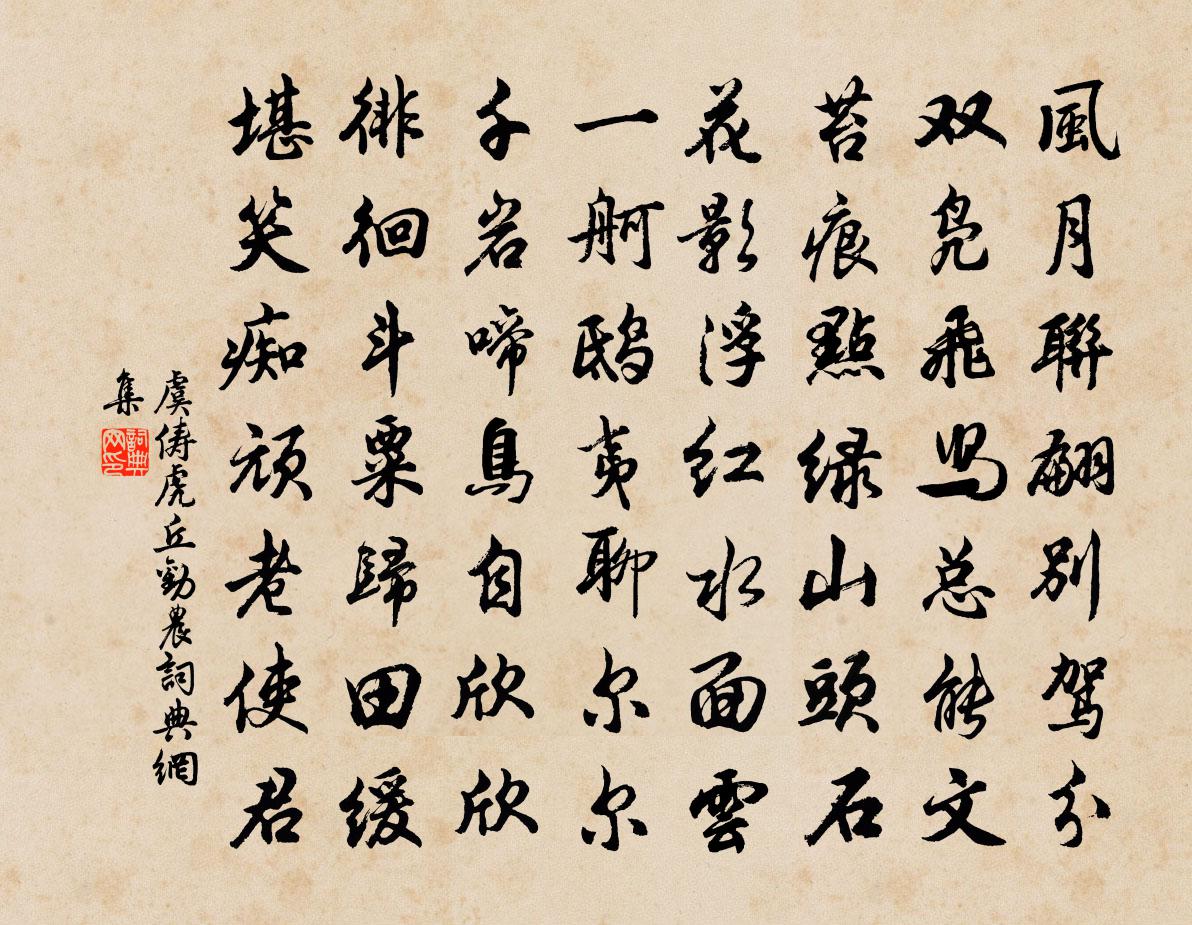 風月聯翩別駕分
双凫飛舄总能文
苔痕點绿山頭石
花影浮红水面雲
一舸鴟夷聊尔尔
千岩啼鳥自欣欣
徘徊斗粟歸田缓
堪笑痴顽老使君
虞俦虎丘勸農詞典網
集
詞典网印